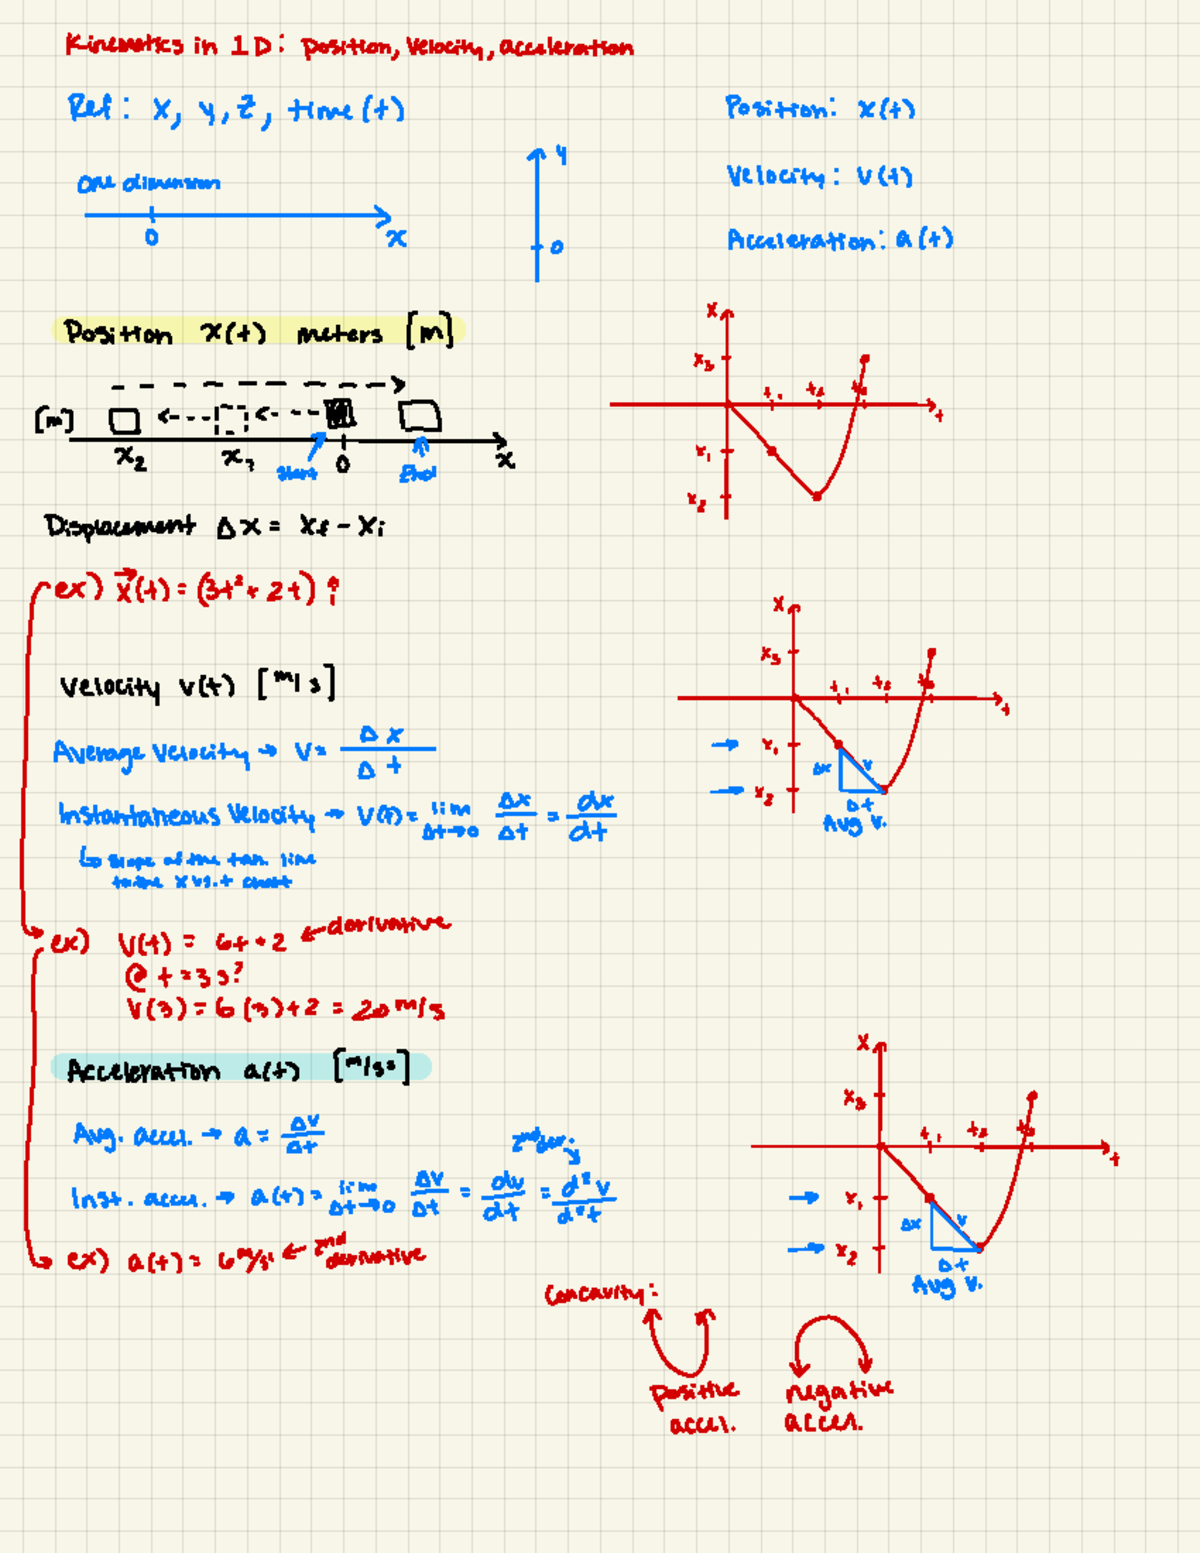 Kinematics in 1D: position, velocity, acceleration
Ref: x, y, z, time (t)
Position: x(t)
Velocity: v(t)
Acceleration: a(t)
one dimension
0
x
y
0
Position x(t) meters [m]
[m]
x₂
x₁
Start
0
End
x
x
x₃
t₁
t₂
t₃
t
x₁
x₂
Displacement Δx = xf - xi
ex) x⃗(t) = (3t² + 2t) î
x
x₃
t₁
t₂
t₃
t
x₁
x₂
Δx
v
Δt
Avg v.
Velocity v(t) [m/s]
Average Velocity → v = Δx/Δt
Instantaneous Velocity → v(t) = lim Δt→0 Δx/Δt = dx/dt
↳ slope of the tan. line
to the x vs. t chart
ex) v(t) = 6t + 2 ← derivative
@ t = 3s?
v(3) = 6(3)+2 = 20 m/s
Acceleration a(t) [m/s²]
Avg. accel. → a = Δv/Δt
2nd der.
Inst. accel. → a(t) = lim Δt→0 Δv/Δt = dv/dt = d²v/d²t
ex) a(t) = 6 m/s² ← 2nd derivative
x
x₃
t₁
t₂
t₃
t
x₁
x₂
Δx
v
Δt
Avg v.
Concavity:
positive
accel.
negative
accel.